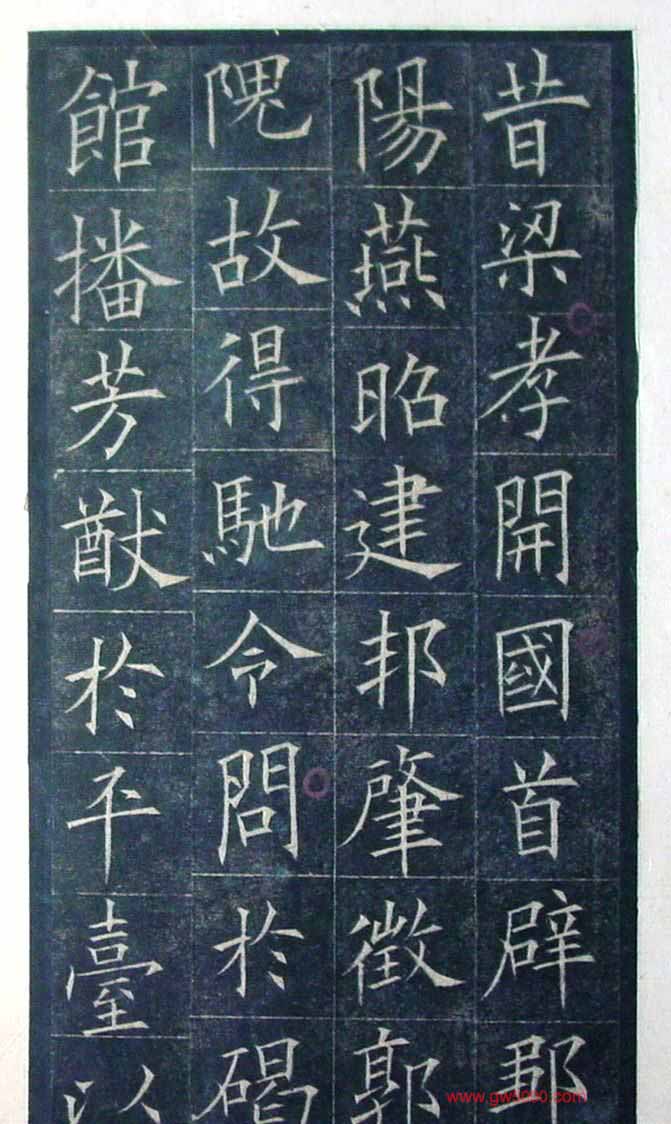 昔梁孝開國首辟鄒
陽燕昭建邦肇徵郭
隗故得馳令問於碣
館播芳猷於平臺以
www.gw5000.com